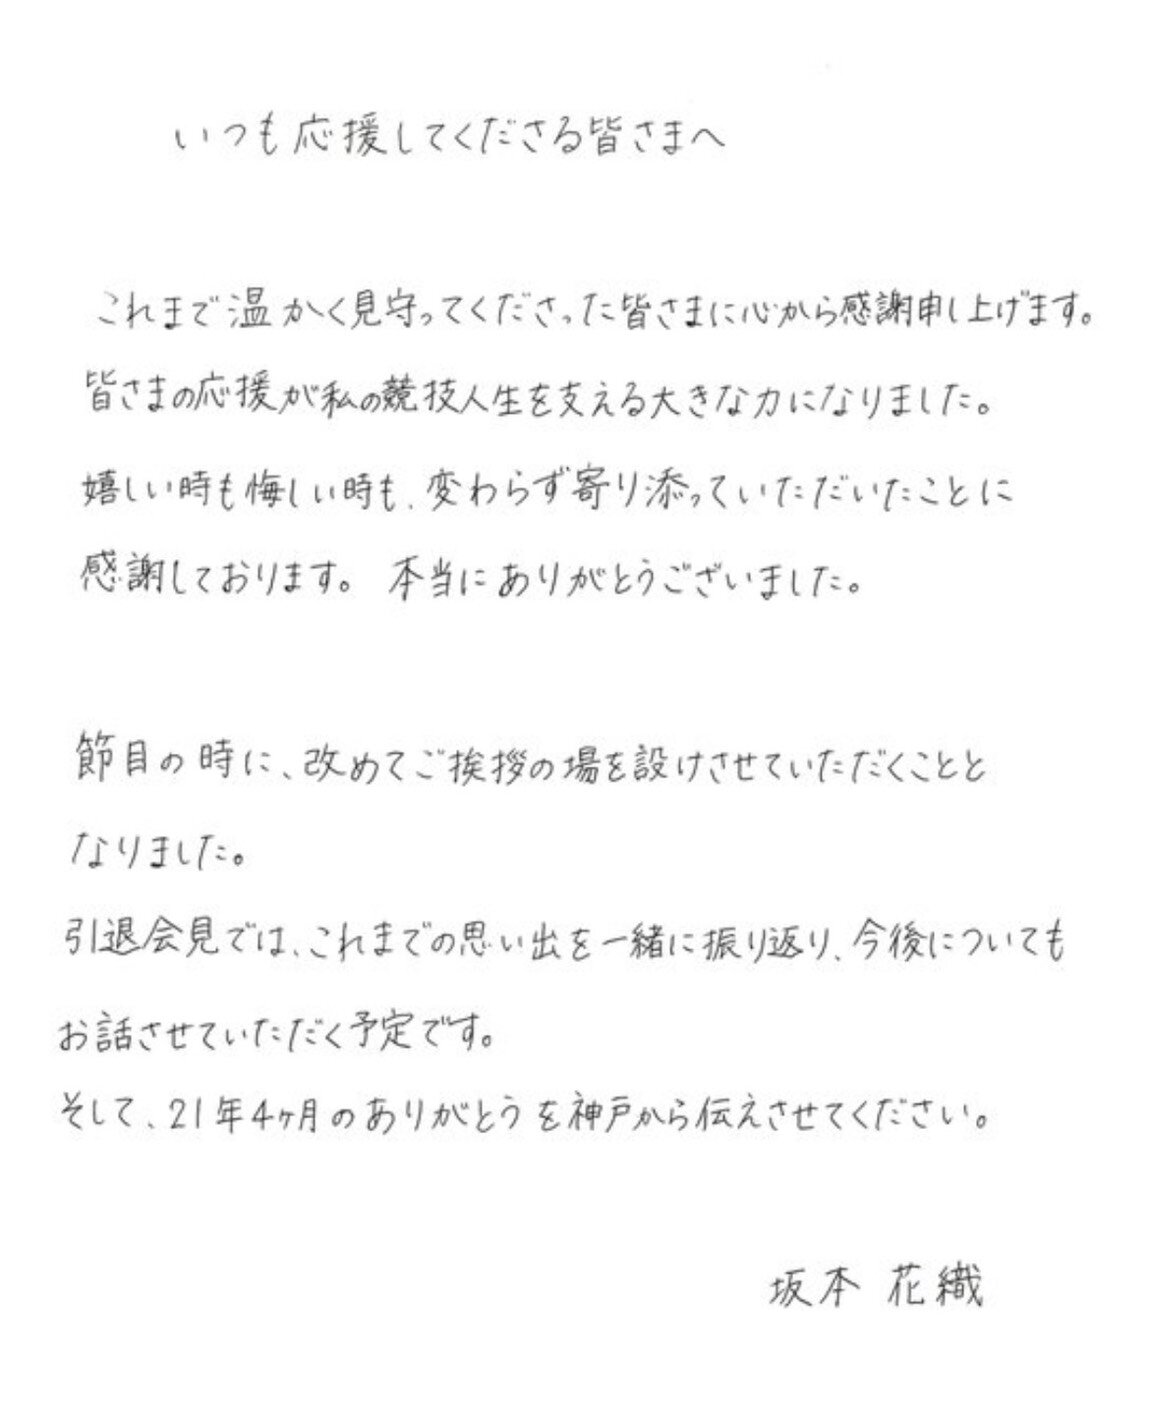 いつも応援してくださる皆さまへ
これまで温かく見守ってくださった皆さまに心から感謝申し上げます。
皆さまの応援が私の競技人生を支える大きな力になりました。
嬉しい時も悔しい時も、変わらず寄り添っていただいたことに
感謝しております。 本当にありがとうございました。
節目の時に、改めてご挨拶の場を設けさせていただくことと
なりました。
引退会見では、これまでの思い出を一緒に振り返り、今後についても
お話させていただく予定です。
そして、21年4ヶ月のありがとうを神戸から伝えさせてください。
坂本 花織